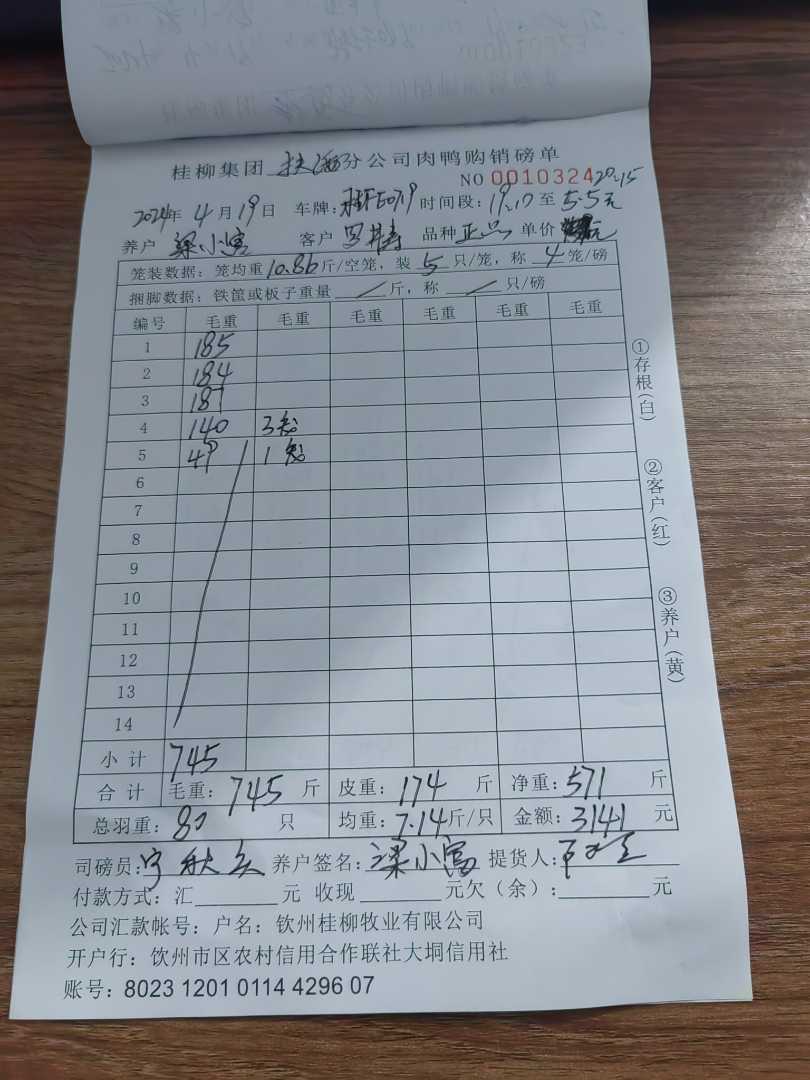 桂柳集团 扶海分公司肉鸭购销磅单
NO 0010324
20.15
2024年 4月19日 车牌: 时间段: 19.17 至 5.5元
养户 梁小富 客户 品种 正品 单价 元
笼装数据: 笼均重10.86斤/空笼, 装 5 只/笼, 称 4 笼/磅
捆脚数据: 铁筐或板子重量 / 斤, 称 / 只/磅
编号 毛重 毛重 毛重 毛重 毛重 毛重
1 185
2 184
3 187
4 140 3笼
5 49 1笼
6
7
8
9
10
11
12
13
14
小计 745
合计 毛重: 745 斤 皮重: 174 斤 净重: 571 斤
总羽重: 80 只 均重: 7.14斤/只 金额: 3141 元
司磅员: 养户签名: 梁小富 提货人:
付款方式: 汇 元 收现 元欠(余): 元
公司汇款帐号: 户名: 钦州桂柳牧业有限公司
开户行: 钦州市区农村信用合作联社大垌信用社
账号: 8023 1201 0114 4296 07
①存根(白)
②客户(红)
③养户(黄)